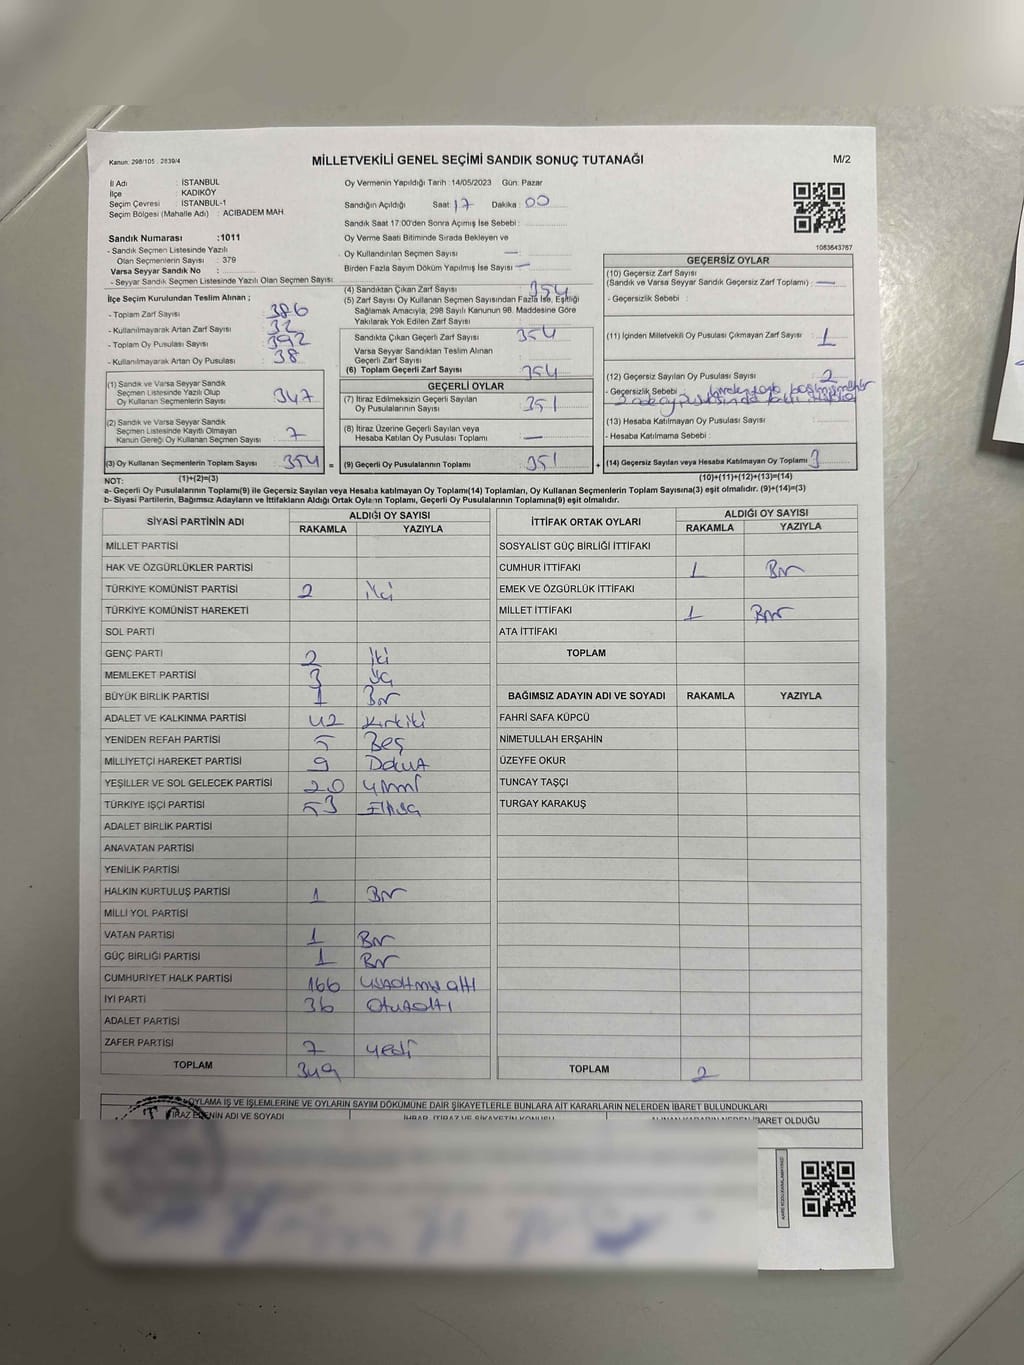 Kanun: 298/105 , 2839/4
MİLLETVEKİLİ GENEL SEÇİMİ SANDIK SONUÇ TUTANAĞI
M/2
İl Adı : İSTANBUL
İlçe : KADIKÖY
Seçim Çevresi : İSTANBUL-1
Seçim Bölgesi (Mahalle Adı) : ACIBADEM MAH.
Oy Vermenin Yapıldığı Tarih : 14/05/2023 Gün: Pazar
Sandığın Açıldığı Saat: 17 Dakika : 00
Sandık Saat 17:00'den Sonra Açılmış İse Sebebi :
Oy Verme Saati Bitiminde Sırada Bekleyen ve
Oy Kullandırılan Seçmen Sayısı —
Birden Fazla Sayım Döküm Yapılmış İse Sayısı —
1083643767
Sandık Numarası :1011
- Sandık Seçmen Listesinde Yazılı
Olan Seçmenlerin Sayısı : 379
Varsa Seyyar Sandık No :
- Seyyar Sandık Seçmen Listesinde Yazılı Olan Seçmen Sayısı:
İlçe Seçim Kurulundan Teslim Alınan ;
- Toplam Zarf Sayısı 386
- Kullanılmayarak Artan Zarf Sayısı 32
- Toplam Oy Pusulası Sayısı 392
- Kullanılmayarak Artan Oy Pusulası 38
(1) Sandık ve Varsa Seyyar Sandık
Seçmen Listesinde Yazılı Olup
Oy Kullanan Seçmenlerin Sayısı 347
(2) Sandık ve Varsa Seyyar Sandık
Seçmen Listesinde Kayıtlı Olmayan
Kanun Gereği Oy Kullanan Seçmen Sayısı 7
(3) Oy Kullanan Seçmenlerin Toplam Sayısı 354 =
(4) Sandıktan Çıkan Zarf Sayısı 354
(5) Zarf Sayısı Oy Kullanan Seçmen Sayısından Fazla İse, Eşitliği
Sağlamak Amacıyla, 298 Sayılı Kanunun 98. Maddesine Göre
Yakılarak Yok Edilen Zarf Sayısı
Sandıkta Çıkan Geçerli Zarf Sayısı 354
Varsa Seyyar Sandıktan Teslim Alınan
Geçerli Zarf Sayısı
(6) Toplam Geçerli Zarf Sayısı 354
GEÇERLİ OYLAR
(7) İtiraz Edilmeksizin Geçerli Sayılan
Oy Pusulalarının Sayısı 351
(8) İtiraz Üzerine Geçerli Sayılan veya
Hesaba Katılan Oy Pusulası Toplamı —
(9) Geçerli Oy Pusulalarının Toplamı 351 +
GEÇERSİZ OYLAR
(10) Geçersiz Zarf Sayısı
(Sandık ve Varsa Seyyar Sandık Geçersiz Zarf Toplamı) : —
- Geçersizlik Sebebi :
(11) İçinden Milletvekili Oy Pusulası Çıkmayan Zarf Sayısı : 1
(12) Geçersiz Sayılan Oy Pusulası Sayısı 2
- Geçersizlik Sebebi :
(13) Hesaba Katılmayan Oy Pusulası Sayısı
- Hesaba Katılmama Sebebi :
(14) Geçersiz Sayılan veya Hesaba Katılmayan Oy Toplamı 3
NOT: (1)+(2)=(3) (10)+(11)+(12)+(13)=(14)
a- Geçerli Oy Pusulalarının Toplamı(9) ile Geçersiz Sayılan veya Hesaba katılmayan Oy Toplamı(14) Toplamları, Oy Kullanan Seçmenlerin Toplam Sayısına(3) eşit olmalıdır. (9)+(14)=(3)
b- Siyasi Partilerin, Bağımsız Adayların ve İttifakların Aldığı Ortak Oyların Toplamı, Geçerli Oy Pusulalarının Toplamına(9) eşit olmalıdır.
SİYASİ PARTİNİN ADI ALDIĞI OY SAYISI
RAKAMLA YAZIYLA
MİLLET PARTİSİ
HAK VE ÖZGÜRLÜKLER PARTİSİ
TÜRKİYE KOMÜNİST PARTİSİ 2 iki
TÜRKİYE KOMÜNİST HAREKETİ
SOL PARTİ
GENÇ PARTİ 2 iki
MEMLEKET PARTİSİ 3 üç
BÜYÜK BİRLİK PARTİSİ 1 Bir
ADALET VE KALKINMA PARTİSİ 42 kırkiki
YENİDEN REFAH PARTİSİ 5 Beş
MİLLİYETÇİ HAREKET PARTİSİ 9 Dokuz
YEŞİLLER VE SOL GELECEK PARTİSİ 20 yirmi
TÜRKİYE İŞÇİ PARTİSİ 53 Elliüç
ADALET BİRLİK PARTİSİ
ANAVATAN PARTİSİ
YENİLİK PARTİSİ
HALKIN KURTULUŞ PARTİSİ 1 Bir
MİLLİ YOL PARTİSİ
VATAN PARTİSİ 1 Bir
GÜÇ BİRLİĞİ PARTİSİ 1 Bir
CUMHURİYET HALK PARTİSİ 166 yüzaltmış altı
İYİ PARTİ 36 otuzaltı
ADALET PARTİSİ
ZAFER PARTİSİ 7 yedi
TOPLAM 349
İTTİFAK ORTAK OYLARI ALDIĞI OY SAYISI
RAKAMLA YAZIYLA
SOSYALİST GÜÇ BİRLİĞİ İTTİFAKI
CUMHUR İTTİFAKI 1 Bir
EMEK VE ÖZGÜRLÜK İTTİFAKI
MİLLET İTTİFAKI 1 Bir
ATA İTTİFAKI
TOPLAM
BAĞIMSIZ ADAYIN ADI VE SOYADI RAKAMLA YAZIYLA
FAHRİ SAFA KÜPCÜ
NİMETULLAH ERŞAHİN
ÜZEYFE OKUR
TUNCAY TAŞÇI
TURGAY KARAKUŞ
TOPLAM 2
OYLAMA İŞ VE İŞLEMLERİNE VE OYLARIN SAYIM DÖKÜMÜNE DAİR ŞİKAYETLERLE BUNLARA AİT KARARLARIN NELERDEN İBARET BULUNDUKLARI